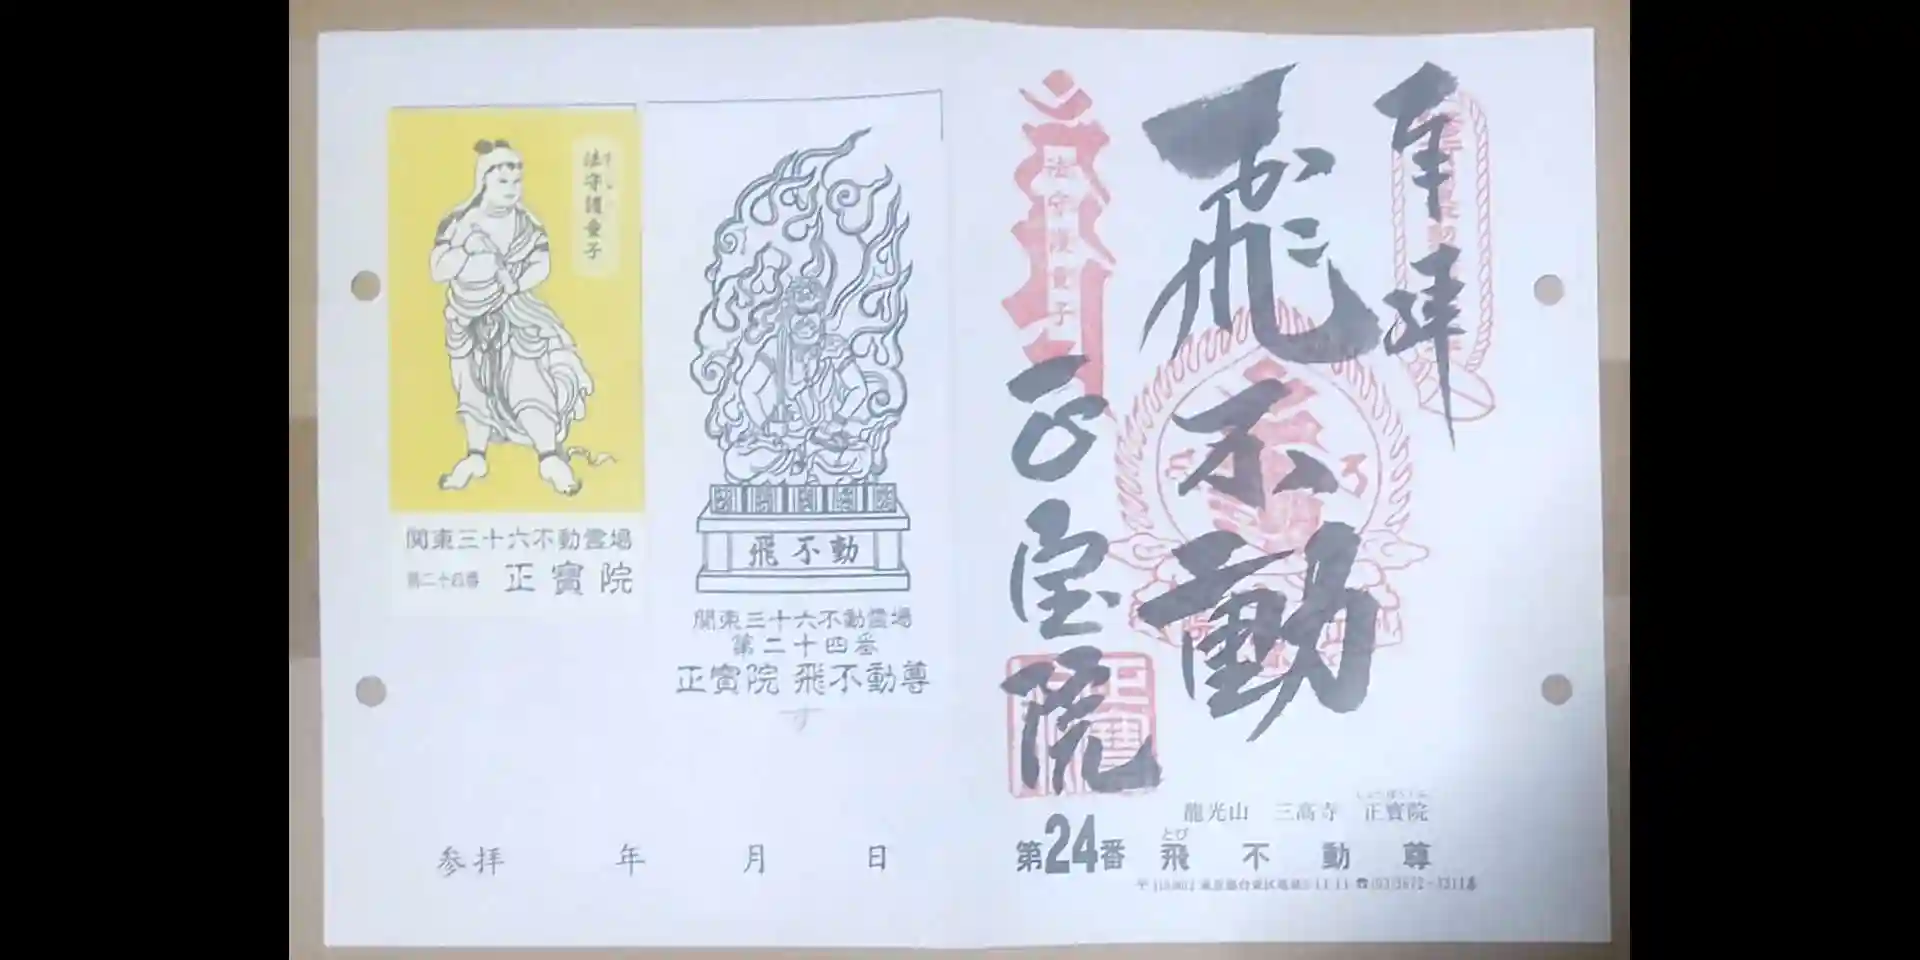 奉拝
飛不動
正宝院
法守護童子
龍光山 三高寺 正寶院
第24番 飛不動尊
とび
法守護童子
関東三十六不動霊場
第二十四番 正寶院
飛不動
関東三十六不動霊場
第二十四番
正寶院 飛不動尊
参拝 年 月 日